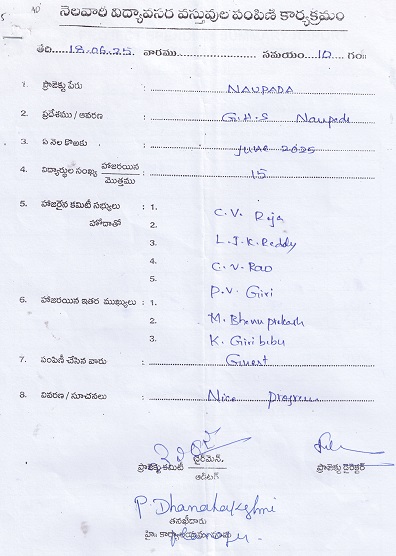 నెలవారి విద్యావసర వస్తువుల పంపిణి కార్యక్రమం
తేది. 18.06.25. వారము. సమయం 10 గం॥
1. ప్రాజెక్టు పేరు : NAUPADA
2. ప్రదేశము / ఆవరణ : G.H.S Naupada
3. ఏ నెల కొఱకు : JUNE 2025
4. విద్యార్థుల సంఖ్య హాజరయిన / మొత్తము : 15
5. హాజరైన కమిటీ సభ్యులు : 1. C.V. Raja
హోదాతో 2. L.J.K. Reddy
3. C.V. Rao
4. P.V. Giri
5.
6. హాజరయిన ఇతర ముఖ్యులు : 1. M. Bhanu prakash
2. K. Giri babu
3.
7. పంపిణీ చేసిన వారు : Guest
8. వివరణ / సూచనలు : Nice program
ప్రాజెక్టు కమిటీ ఛైర్మెన్. ప్రాజెక్టు డైరెక్టర్
ఆడిటర్
P Dhanalakshmi
తనఖీదారు